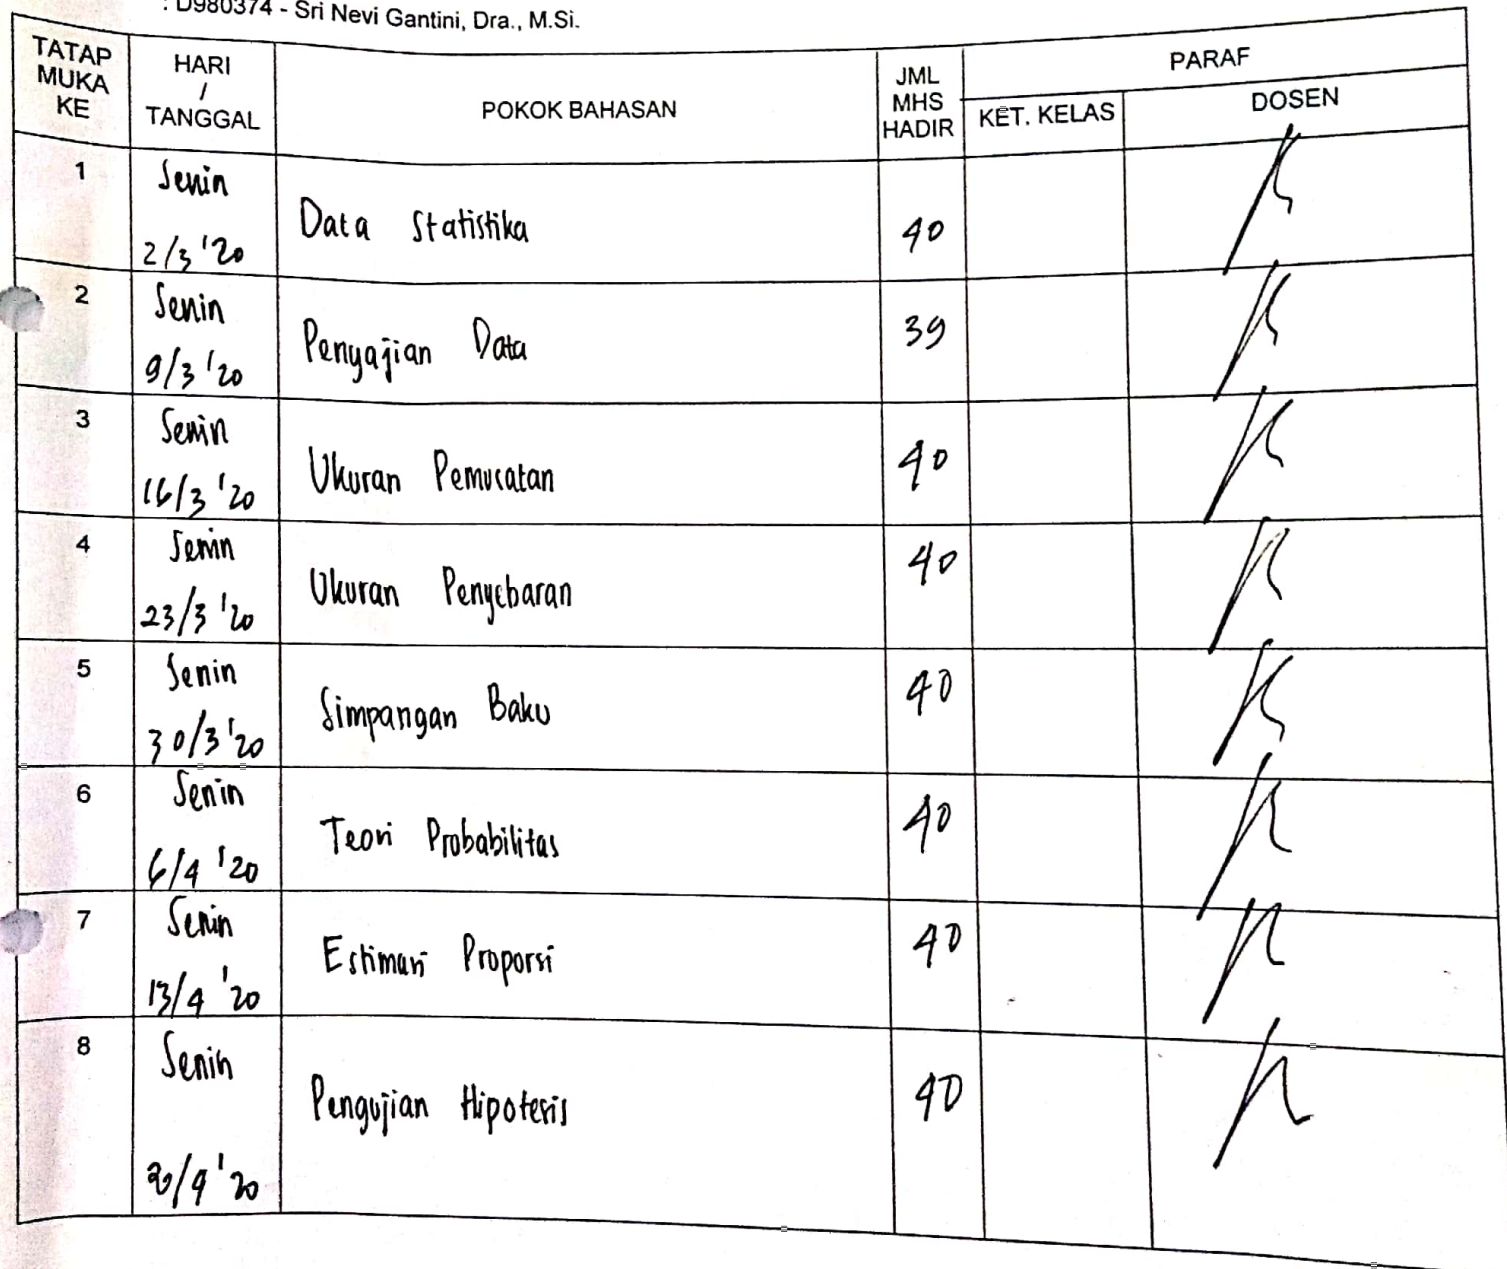 : D980374 - Sri Nevi Gantini, Dra., M.Si.
TATAP MUKA KE
HARI / TANGGAL
POKOK BAHASAN
JML MHS HADIR
PARAF
KET. KELAS
DOSEN
1 Senin 2/3 '20 Data Statistika 40
2 Senin 9/3 '20 Penyajian Data 39
3 Senin 16/3 '20 Ukuran Pemusatan 40
4 Senin 23/3 '20 Ukuran Penyebaran 40
5 Senin 30/3 '20 Simpangan Baku 40
6 Senin 6/4 '20 Teori Probabilitas 40
7 Senin 13/4 '20 Estimasi Proporsi 40
8 Senin 20/4 '20 Pengujian Hipotesis 40